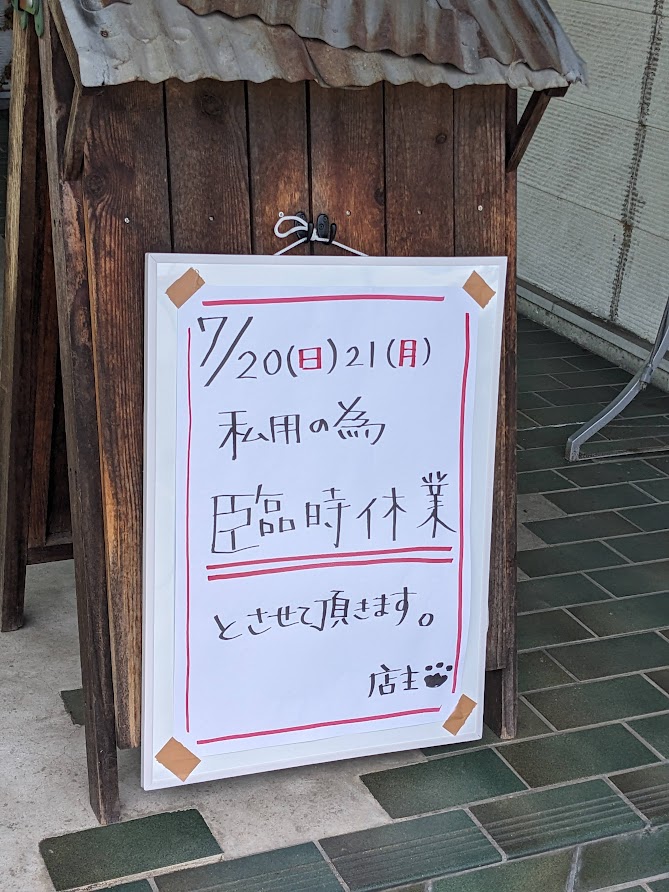 7/20(日)21(月)
私用の為
臨時休業
とさせて頂きます。
店主